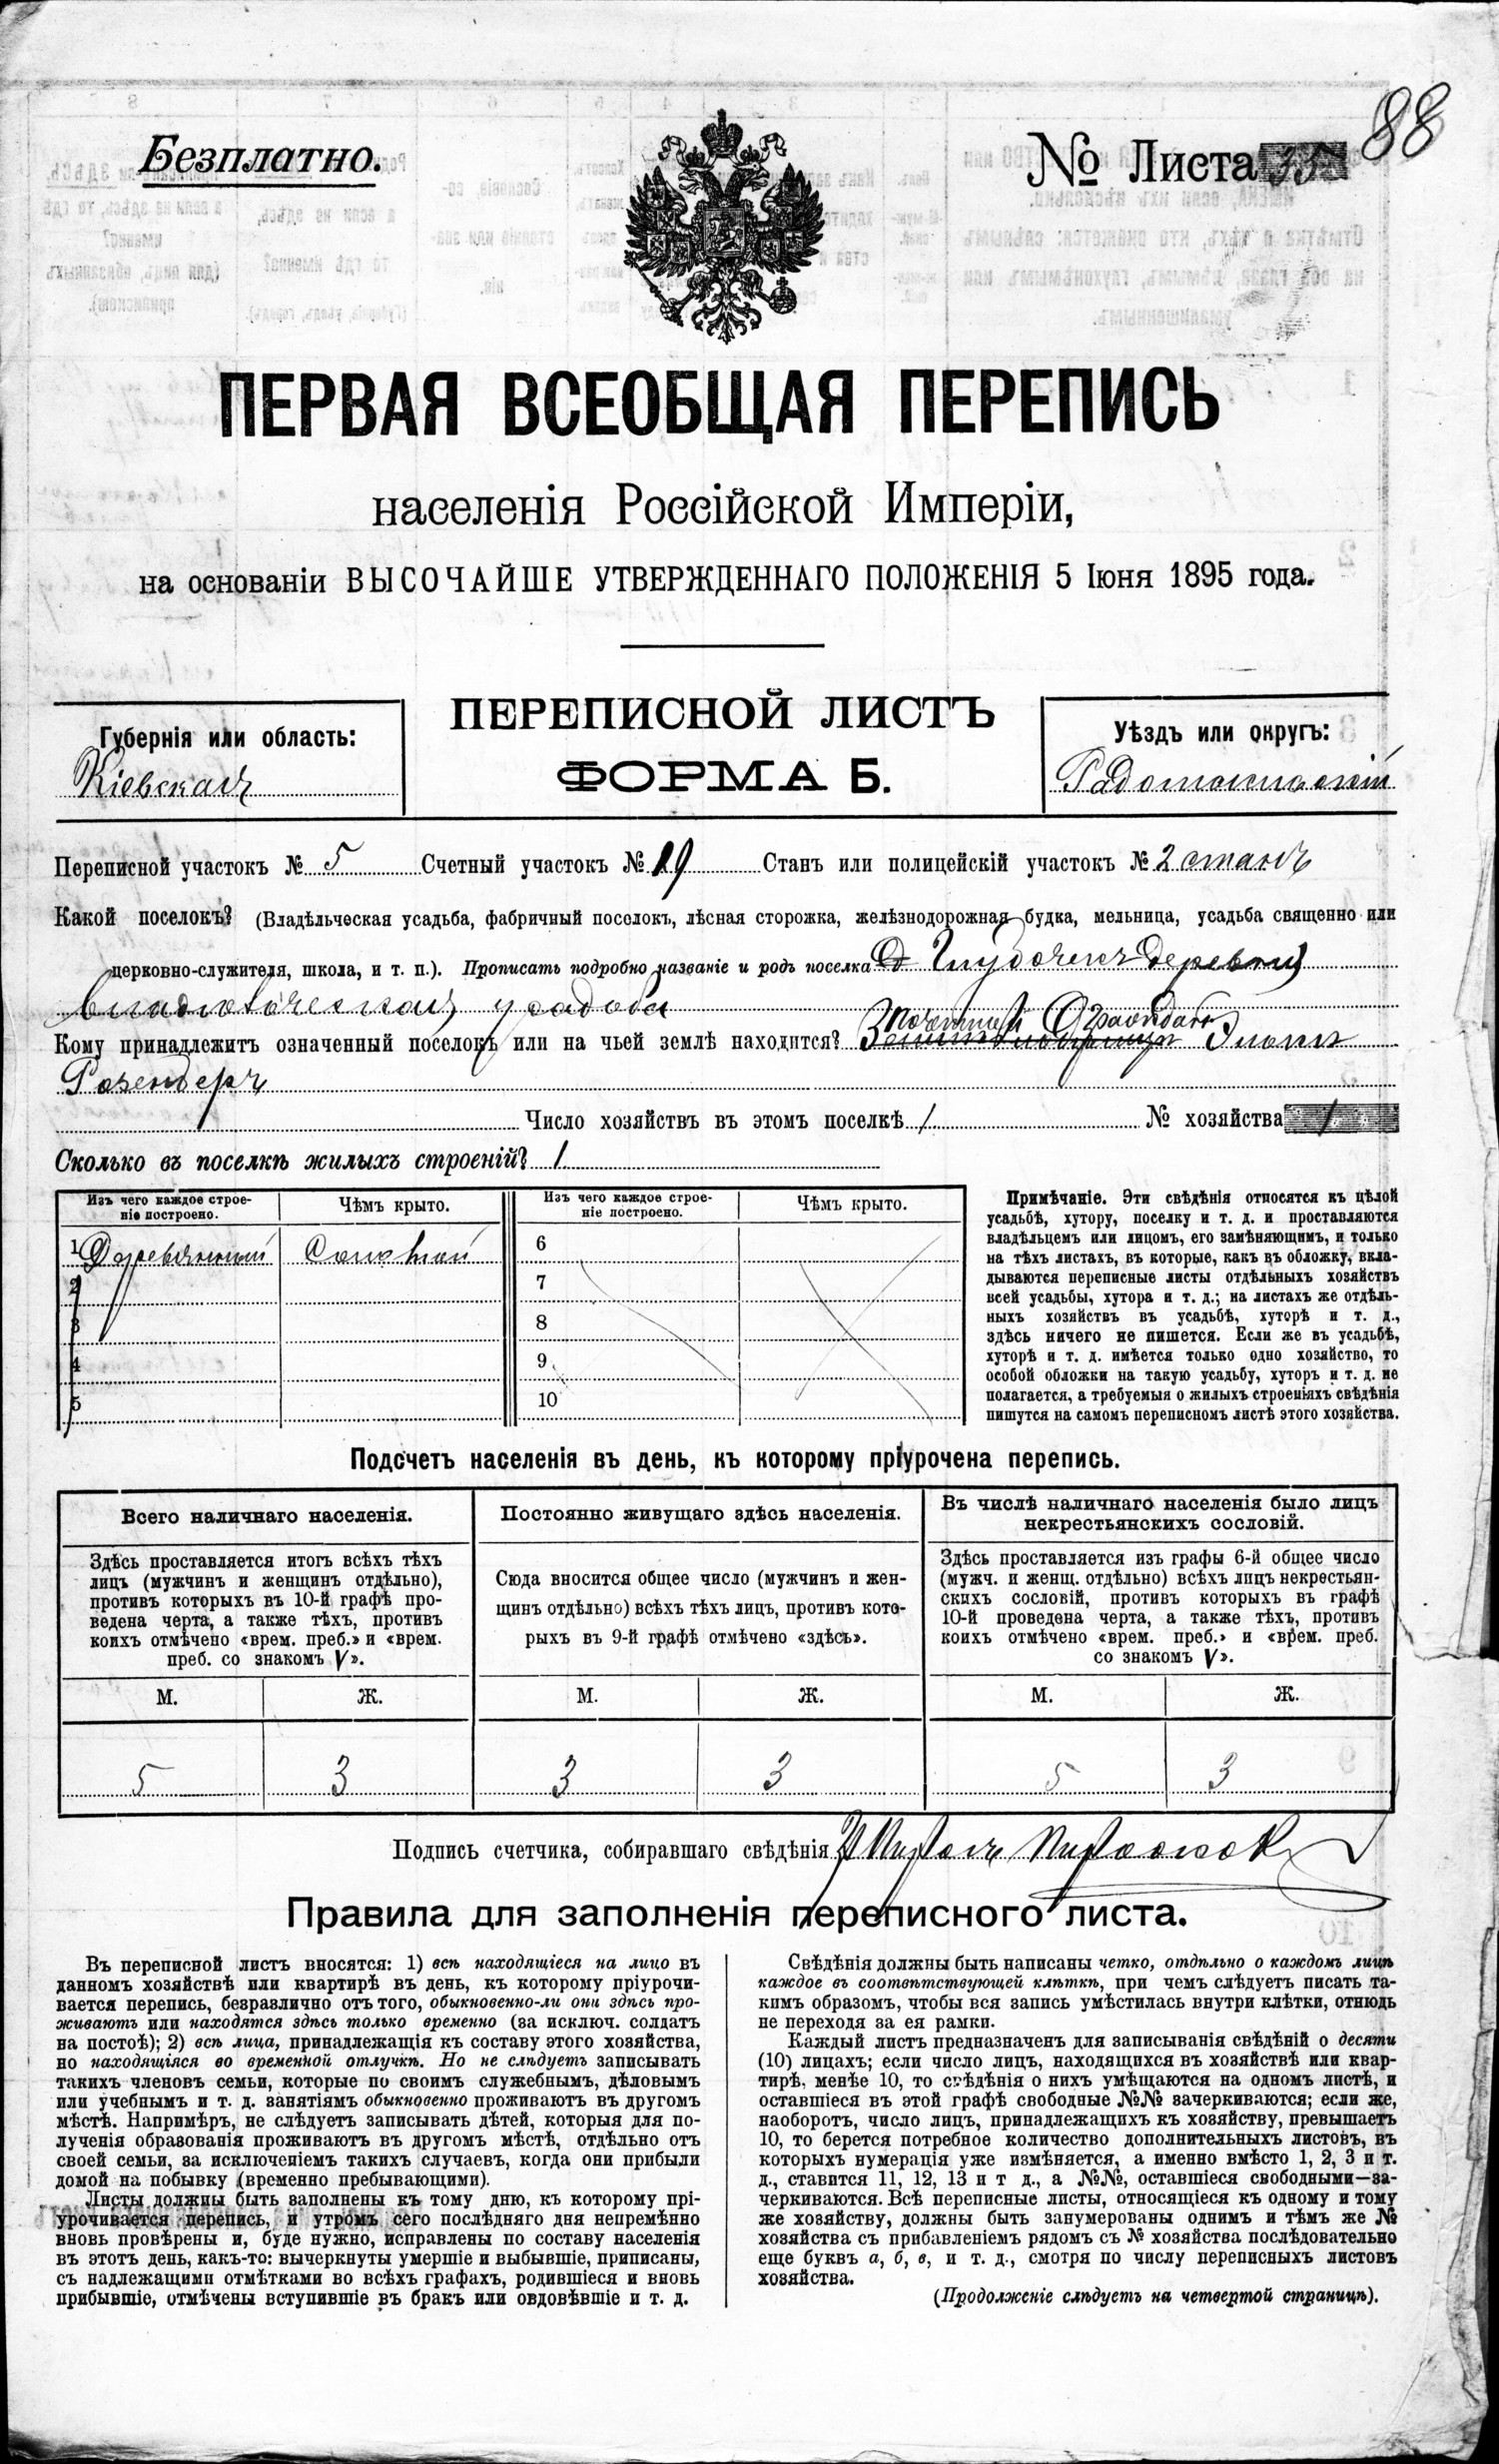 88
Безплатно.
№ Листа 35
ПЕРВАЯ ВСЕОБЩАЯ ПЕРЕПИСЬ
населенія Россійской Имперіи,
на основаніи ВЫСОЧАЙШЕ УТВЕРЖДЕННАГО ПОЛОЖЕНІЯ 5 Іюня 1895 года.
ПЕРЕПИСНОЙ ЛИСТЪ
ФОРМА Б.
Губернія или область:
Кіевская
Уѣздъ или округъ:
Радомысльскій
Переписной участокъ № 5 Счетный участокъ № 19 Станъ или полицейскій участокъ № 2 станъ
Какой поселокъ? (Владѣльческая усадьба, фабричный поселокъ, лѣсная сторожка, желѣзнодорожная будка, мельница, усадьба священно или
церковно-служителя, школа, и т. п.). Прописать подробно названіе и родъ поселка деревня
владѣльческая усадьба
Кому принадлежитъ означенный поселокъ или на чьей землѣ находится? Почетный Гражданинъ
Число хозяйствъ въ этомъ поселкѣ 1 № хозяйства 1
Сколько въ поселкѣ жилыхъ строеній? 1
Изъ чего каждое строе-
ніе построено.
Чѣмъ крыто.
Изъ чего каждое строе-
ніе построено.
Чѣмъ крыто.
1 Деревянный
2
3
4
5
6
7
8
9
10
Примѣчаніе. Эти свѣдѣнія относятся къ цѣлой
усадьбѣ, хутору, поселку и т. д. и проставляются
владѣльцемъ или лицомъ, его замѣняющимъ, и только
на тѣхъ листахъ, въ которые, какъ въ обложку, вкла-
дываются переписные листы отдѣльныхъ хозяйствъ
всей усадьбы, хутора и т. д.; на листахъ же отдѣль-
ныхъ хозяйствъ въ усадьбѣ, хуторѣ и т. д.,
здѣсь ничего не пишется. Если же въ усадьбѣ,
хуторѣ и т. д. имѣется только одно хозяйство, то
особой обложки на такую усадьбу, хуторъ и т. д. не
полагается, а требуемыя о жилыхъ строеніяхъ свѣдѣнія
пишутся на самомъ переписномъ листѣ этого хозяйства.
Подсчетъ населенія въ день, къ которому пріурочена перепись.
Всего наличнаго населенія.
Здѣсь проставляется итогъ всѣхъ тѣхъ
лицъ (мужчинъ и женщинъ отдѣльно),
противъ которыхъ въ 10-й графѣ про-
ведена черта, а также тѣхъ, противъ
коихъ отмѣчено «врем. преб.» и «врем.
преб. со знакомъ V».
М. Ж.
5 3
Постоянно живущаго здѣсь населенія.
Сюда вносится общее число (мужчинъ и жен-
щинъ отдѣльно) всѣхъ тѣхъ лицъ, противъ кото-
рыхъ въ 9-й графѣ отмѣчено «здѣсь».
М. Ж.
3 3
Въ числѣ наличнаго населенія было лицъ
некрестьянскихъ сословій.
Здѣсь проставляется изъ графы 6-й общее число
(мужч. и женщ. отдѣльно) всѣхъ лицъ некрестьян-
скихъ сословій, противъ которыхъ въ графѣ
10-й проведена черта, а также тѣхъ, противъ
коихъ отмѣчено «врем. преб.» и «врем. преб.
со знакомъ V».
М. Ж.
5 3
Подпись счетчика, собиравшаго свѣдѣнія
Правила для заполненія переписного листа.
Въ переписной листъ вносятся: 1) всѣ находящіеся на лицо въ
данномъ хозяйствѣ или квартирѣ въ день, къ которому пріурочи-
вается перепись, безразлично отъ того, обыкновенно-ли они здѣсь про-
живаютъ или находятся здѣсь только временно (за исключ. солдатъ
на постоѣ); 2) всѣ лица, принадлежащія къ составу этого хозяйства,
но находящіяся во временной отлучкѣ. Но не слѣдуетъ записывать
такихъ членовъ семьи, которые по своимъ служебнымъ, дѣловымъ
или учебнымъ и т. д. занятіямъ обыкновенно проживаютъ въ другомъ
мѣстѣ. Напримѣръ, не слѣдуетъ записывать дѣтей, которыя для по-
лученія образованія проживаютъ въ другомъ мѣстѣ, отдѣльно отъ
своей семьи, за исключеніемъ такихъ случаевъ, когда они прибыли
домой на побывку (временно пребывающими).
Листы должны быть заполнены къ тому дню, къ которому прі-
урочивается перепись, и утромъ сего послѣдняго дня непремѣнно
вновь провѣрены и, буде нужно, исправлены по составу населенія
въ этотъ день, какъ-то: вычеркнуты умершіе и выбывшіе, приписаны,
съ надлежащими отмѣтками во всѣхъ графахъ, родившіеся и вновь
прибывшіе, отмѣчены вступившіе въ бракъ или овдовѣвшіе и т. д.
Свѣдѣнія должны быть написаны четко, отдѣльно о каждомъ лицѣ
каждое въ соотвѣтствующей клѣткѣ, при чемъ слѣдуетъ писать та-
кимъ образомъ, чтобы вся запись умѣстилась внутри клѣтки, отнюдь
не переходя за ея рамки.
Каждый листъ предназначенъ для записыванія свѣдѣній о десяти
(10) лицахъ; если число лицъ, находящихся въ хозяйствѣ или квар-
тирѣ, менѣе 10, то свѣдѣнія о нихъ умѣщаются на одномъ листѣ, и
оставшіеся въ этой графѣ свободные №№ зачеркиваются; если же,
наоборотъ, число лицъ, принадлежащихъ къ хозяйству, превышаетъ
10, то берется потребное количество дополнительныхъ листовъ, въ
которыхъ нумерація уже измѣняется, а именно вмѣсто 1, 2, 3 и т.
д., ставится 11, 12, 13 и т д., а №№, оставшіеся свободными—за-
черкиваются. Всѣ переписные листы, относящіеся къ одному и тому
же хозяйству, должны быть занумерованы однимъ и тѣмъ же №
хозяйства съ прибавленіемъ рядомъ съ № хозяйства послѣдовательно
еще буквъ а, б, в, и т. д., смотря по числу переписныхъ листовъ
хозяйства.
(Продолженіе слѣдуетъ на четвертой страницѣ).